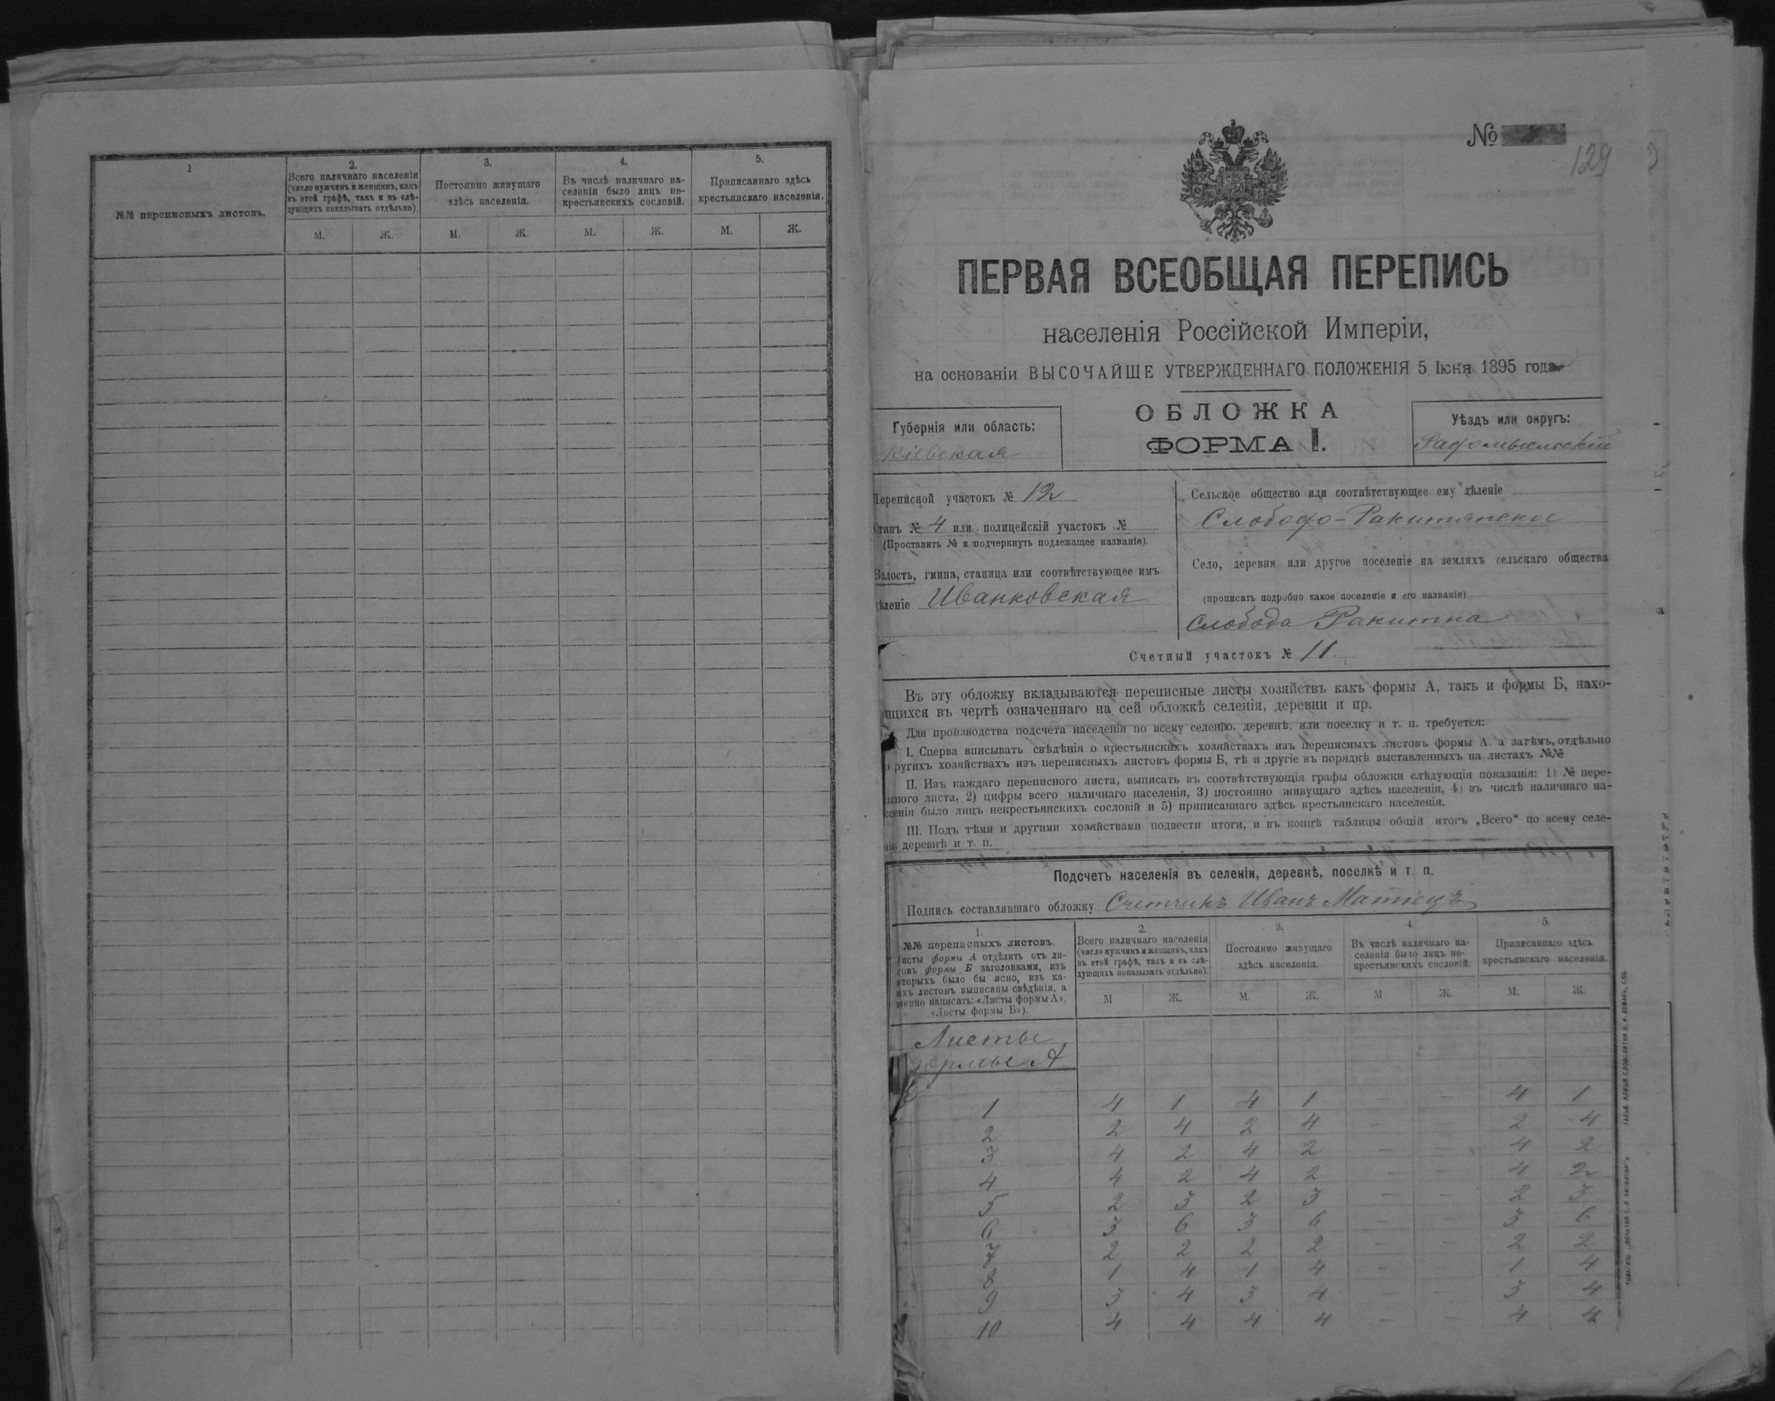 1
№№ переписныхъ листовъ.
2.
Всего наличнаго населенія
(число мужчинъ и женщинъ, какъ
въ этой графѣ, такъ и въ слѣ-
дующихъ показывать отдѣльно)
3.
Постоянно живущаго
здѣсь населенія.
4.
Въ числѣ наличнаго на-
селенія было лицъ не-
крестьянскихъ сословій.
5.
Приписаннаго здѣсь
крестьянскаго населенія.
М. Ж. М. Ж. М. Ж. М. Ж.
№
129
ПЕРВАЯ ВСЕОБЩАЯ ПЕРЕПИСЬ
населенія Россійской Имперіи,
на основаніи ВЫСОЧАЙШЕ УТВЕРЖДЕННАГО ПОЛОЖЕНІЯ 5 Іюня 1895 года
ОБЛОЖКА
ФОРМА I.
Губернія или область:
Кіевская
Уѣздъ или округъ:
Радомысльскій
Переписной участокъ № 12
Станъ № 4 или полицейскій участокъ №
(Проставить № и подчеркнуть подлежащее названіе).
Волость, гмина, станица или соотвѣтствующее имъ
дѣленіе Иванковская
Сельское общество или соотвѣтствующее ему дѣленіе
Слободо-Ракитянское
Село, деревня или другое поселеніе на земляхъ сельскаго общества
(прописать подробно какое поселеніе и его названіе)
Слобода Ракитна
Счетный участокъ № 11
Въ эту обложку вкладываются переписные листы хозяйствъ какъ формы А, такъ и формы Б, нахо-
щихся въ чертѣ означеннаго на сей обложкѣ селенія, деревни и пр.
Для производства подсчета населенія по всему селенію, деревнѣ, или поселку и т. п. требуется:
I. Сперва вписывать свѣдѣнія о крестьянскихъ хозяйствахъ изъ переписныхъ листовъ формы А. а затѣмъ, отдѣльно
ругихъ хозяйствахъ изъ переписныхъ листовъ формы Б, тѣ и другіе въ порядкѣ выставленныхъ на листахъ №№
II. Изъ каждаго переписного листа, выписать въ соотвѣтствующія графы обложки слѣдующія показанія: 1) № пере-
ного листа, 2) цифры всего наличнаго населенія, 3) постоянно живущаго здѣсь населенія, 4) въ числѣ наличнаго на-
сенія было лицъ некрестьянскихъ сословій и 5) приписаннаго здѣсь крестьянскаго населенія.
III. Подъ тѣми и другими хозяйствами подвести итоги, и въ концѣ таблицы общій итогъ „Всего“ по всему селе-
деревнѣ и т. п.
Подсчетъ населенія въ селеніи, деревнѣ, поселкѣ и т. п.
Подпись составлявшаго обложку Счетчикъ Иванъ
1.
№№ переписныхъ листовъ.
листы формы А отдѣлить отъ ли-
совъ формы Б заголовками, изъ
которыхъ было бы ясно, изъ ка-
ихъ листовъ выписаны свѣдѣнія, а
менно написать: «Листы формы А».
«Листы формы Б»).
2.
Всего наличнаго населенія
(число мужчинъ и женщинъ, какъ
въ этой графѣ, такъ и въ слѣ-
дующихъ показывать отдѣльно).
3.
Постоянно живущаго
здѣсь населенія.
4.
Въ числѣ наличнаго на-
селенія было лицъ не-
крестьянскихъ сословій.
5
Приписаннаго здѣсь
крестьянскаго населенія.
М Ж. М. Ж. М Ж. М. Ж.
Листы
формы А
1 4 1 4 1 - - 4 1
2 2 4 2 4 - - 2 4
3 4 2 4 2 - - 4 2
4 4 2 4 2 - - 4 2
5 2 3 2 3 - - 2 3
6 3 6 3 6 - - 3 6
7 2 2 2 2 - - 2 2
8 1 4 1 4 - - 1 4
9 3 4 3 4 - - 3 4
10 4 4 4 4 - - 4 4